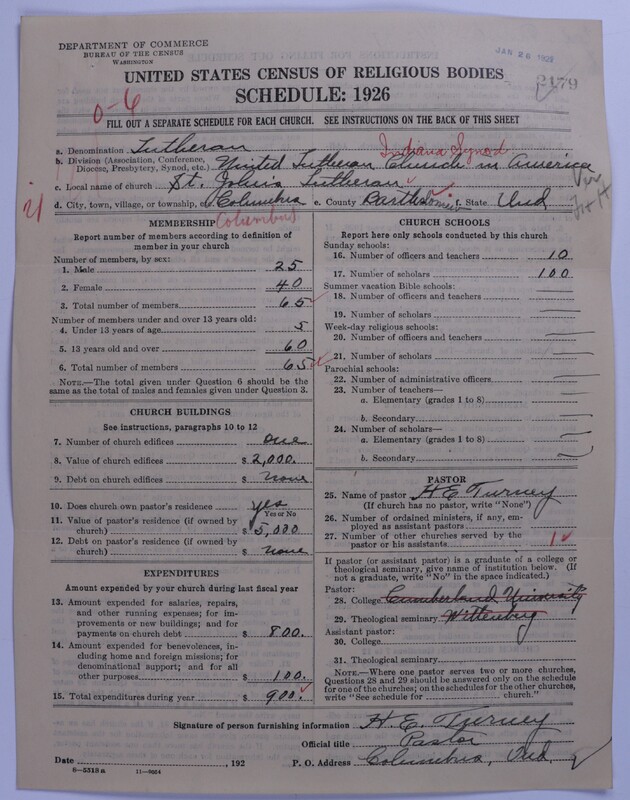 DEPARTMENT OF COMMERCE
BUREAU OF THE CENSUS
WASHINGTON
JAN 26 1928
UNITED STATES CENSUS OF RELIGIOUS BODIES
2179
SCHEDULE: 1926
0-6
FILL OUT A SEPARATE SCHEDULE FOR EACH CHURCH. SEE INSTRUCTIONS ON THE BACK OF THIS SHEET
a. Denomination Lutheran Indiana Synod
b. Division (Association, Conference, Diocese, Presbytery, Synod, etc.) United Lutheran Church in America
c. Local name of church St. Johns Lutheran
d. City, town, village, or township, Columbus e. County Bartholomew f. State Ind
Columbus
MEMBERSHIP
Report number of members according to definition of member in your church
Number of members, by sex:
1. Male 25
2. Female 40
3. Total number of members 65
Number of members under and over 13 years old:
4. Under 13 years of age 5
5. 13 years old and over 60
6. Total number of members 65
NOTE.—The total given under Question 6 should be the same as the total of males and females given under Question 3.
CHURCH BUILDINGS
See instructions, paragraphs 10 to 12
7. Number of church edifices one
8. Value of church edifices $ 2,000.
9. Debt on church edifices $ none
10. Does church own pastor's residence yes
Yes or No
11. Value of pastor's residence (if owned by church) $ 5,000
12. Debt on pastor's residence (if owned by church) $ none
EXPENDITURES
Amount expended by your church during last fiscal year
13. Amount expended for salaries, repairs, and other running expenses; for improvements or new buildings; and for payments on church debt $ 800.
14. Amount expended for benevolences, including home and foreign missions; for denominational support; and for all other purposes $ 100.
15. Total expenditures during year $ 900.
CHURCH SCHOOLS
Report here only schools conducted by this church
Sunday schools:
16. Number of officers and teachers 10
17. Number of scholars 100
Summer vacation Bible schools:
18. Number of officers and teachers
19. Number of scholars
Week-day religious schools:
20. Number of officers and teachers
21. Number of scholars
Parochial schools:
22. Number of administrative officers
23. Number of teachers—
a. Elementary (grades 1 to 8)
b. Secondary
24. Number of scholars—
a. Elementary (grades 1 to 8)
b. Secondary
PASTOR
25. Name of pastor H E Turney
(If church has no pastor, write "None")
26. Number of ordained ministers, if any, employed as assistant pastors
27. Number of other churches served by the pastor or his assistants 1
If pastor (or assistant pastor) is a graduate of a college or theological seminary, give name of institution below. (If not a graduate, write "No" in the space indicated.)
Pastor:
28. College Cumberland University
29. Theological seminary Wittenburg
Assistant pastor:
30. College
31. Theological seminary
NOTE.—Where one pastor serves two or more churches, Questions 28 and 29 should be answered only on the schedule for one of the churches; on the schedules for the other churches, write "See schedule for church."
Signature of person furnishing information H. E. Turney
Official title Pastor
Date , 192 P. O. Address Columbus, Ind,
8-5318 a 11-9054